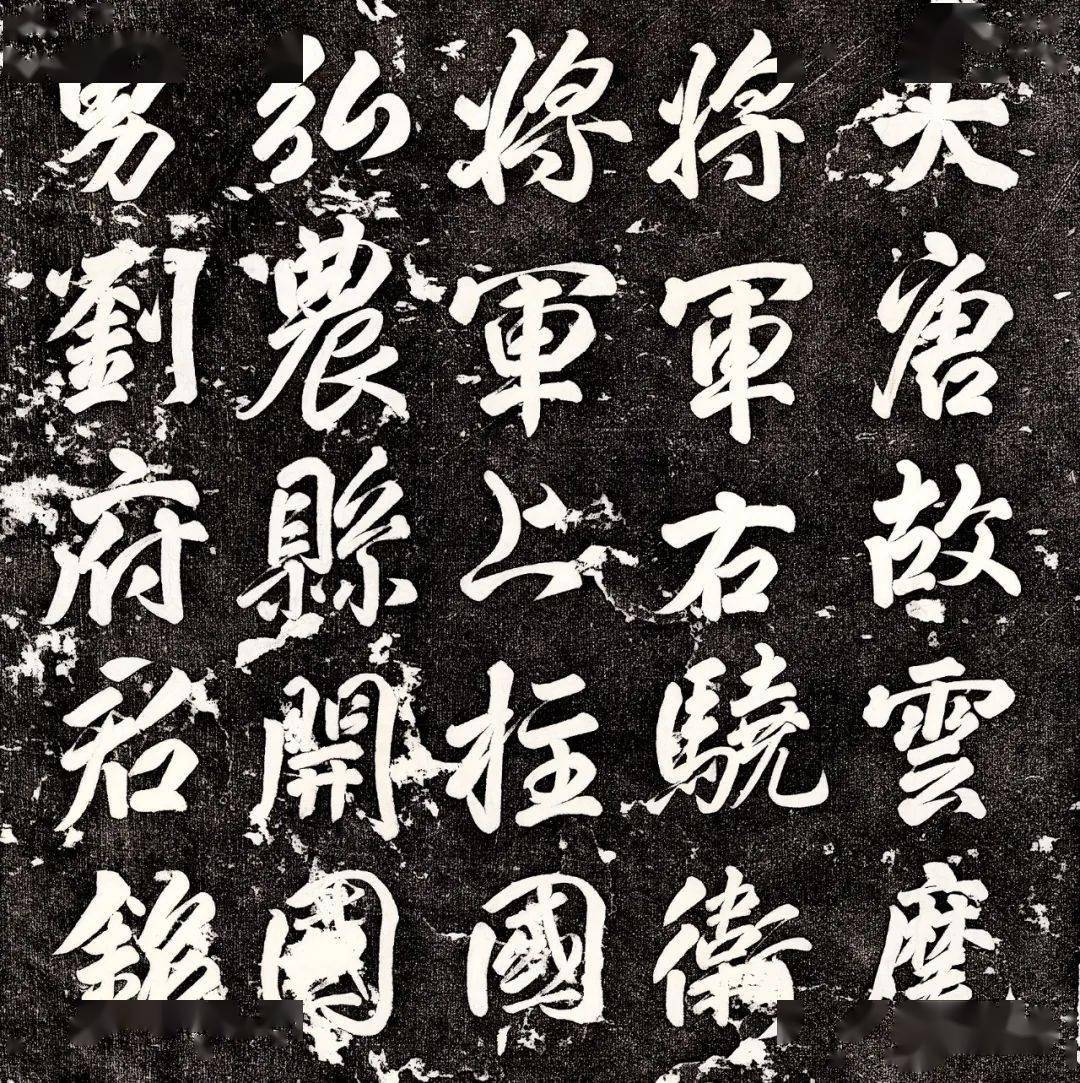 大唐故雲麾
將軍右驍衛
將軍上柱國
弘農縣開國
男劉府君